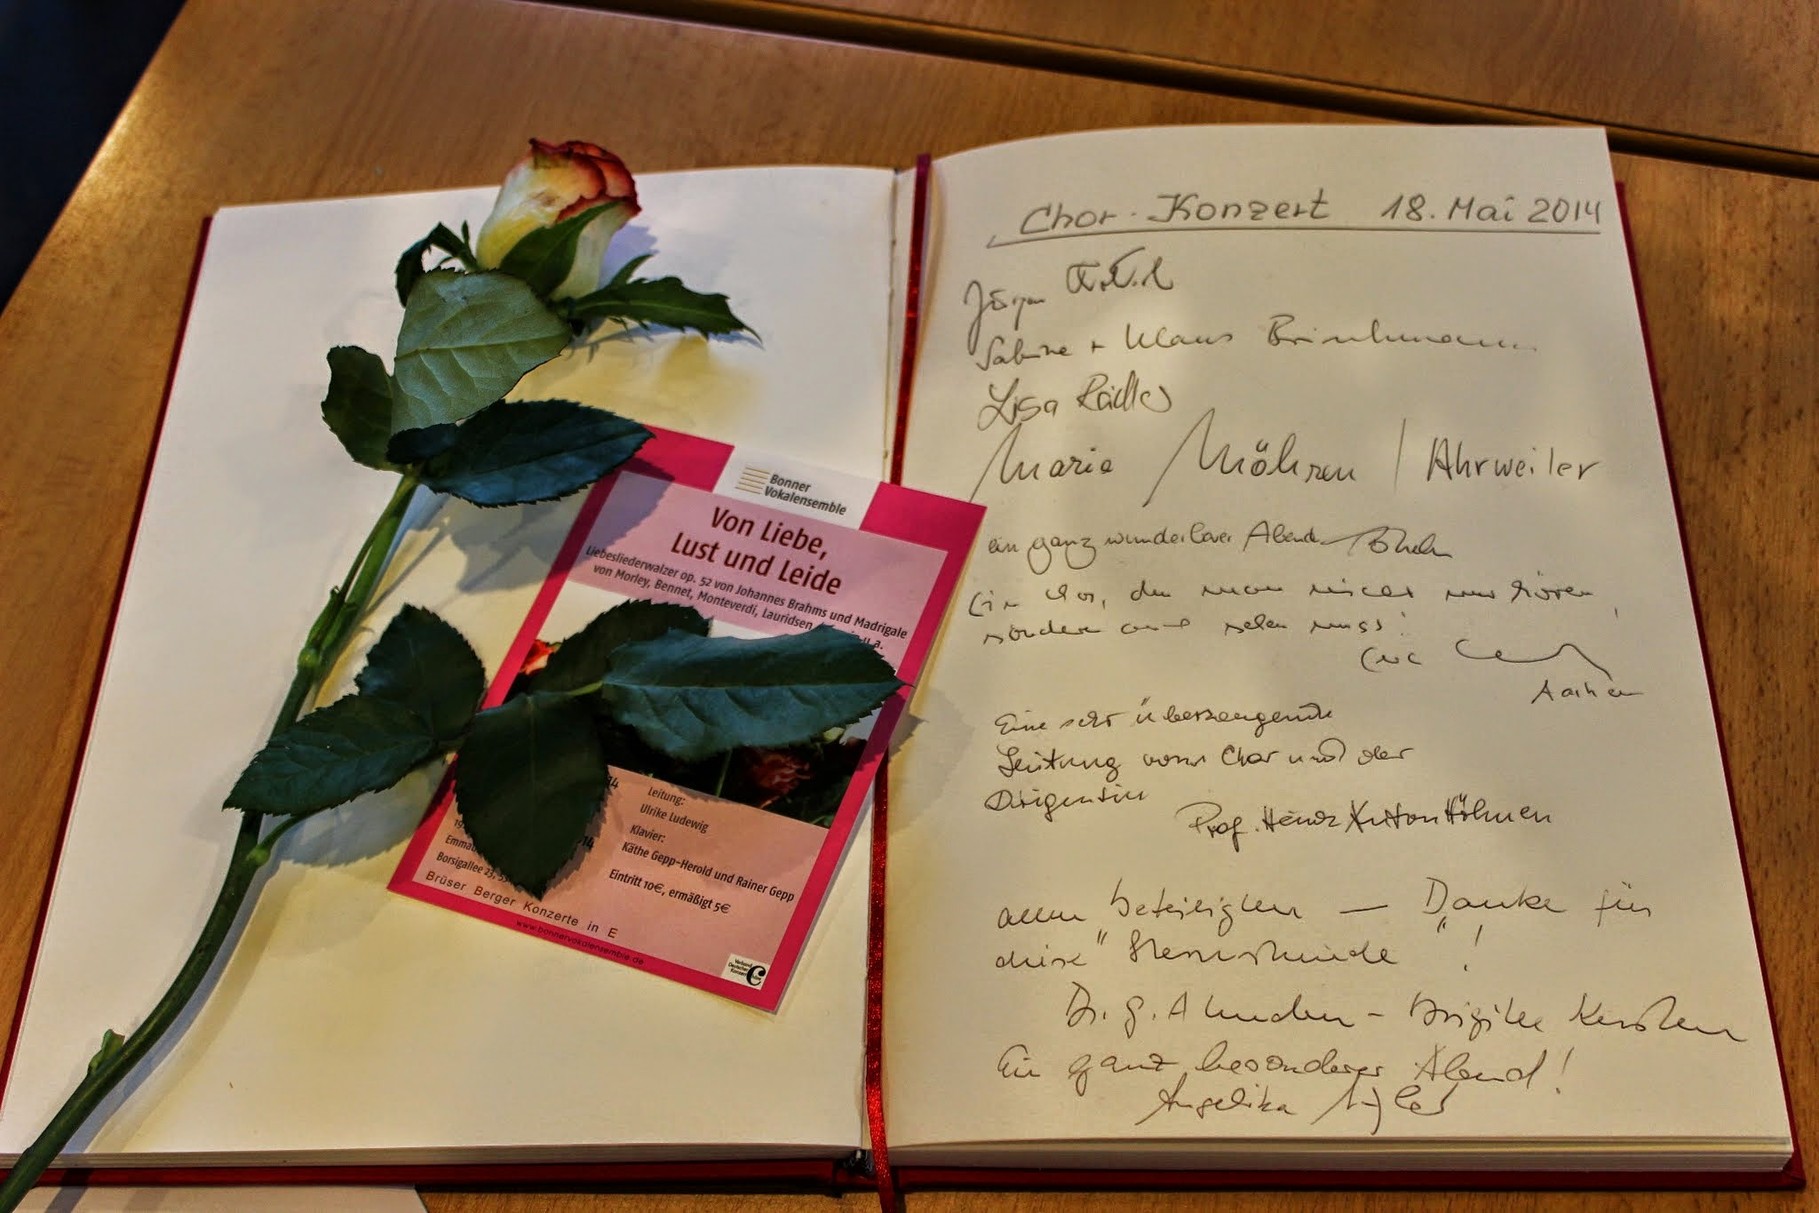 Bonner
Vokalensemble
Von Liebe,
Lust und Leide
Liebesliederwalzer op. 52 von Johannes Brahms und Madrigale
von Morley, Bennet, Monteverdi, Lauridsen u.a.
Leitung:
Ulrike Ludewig
Klavier:
Käthe Gepp-Herold und Rainer Gepp
Eintritt 10€, ermäßigt 5€
Borsigallee 23,
Brüser Berger Konzerte in E
www.bonnervokalensemble.de
Verband
Deutscher
Chor-Konzert 18. Mai 2014
Jürgen
Sabine + Klaus Brinkmann
Lisa
Maria Möhren / Ahrweiler
ein ganz wunderbarer Abend
Ein Chor, den man nicht nur hören,
sondern auch sehen muss!
Aachen
Eine sehr überzeugende
Leitung vom Chor und der
Dirigentin
Prof. Heinz Anton Höhnen
allen Beteiligten — Danke für
diese "Sternstunde"!
Dr. G. - Brigitte Kersten
Ein ganz besonderer Abend!
Angelika